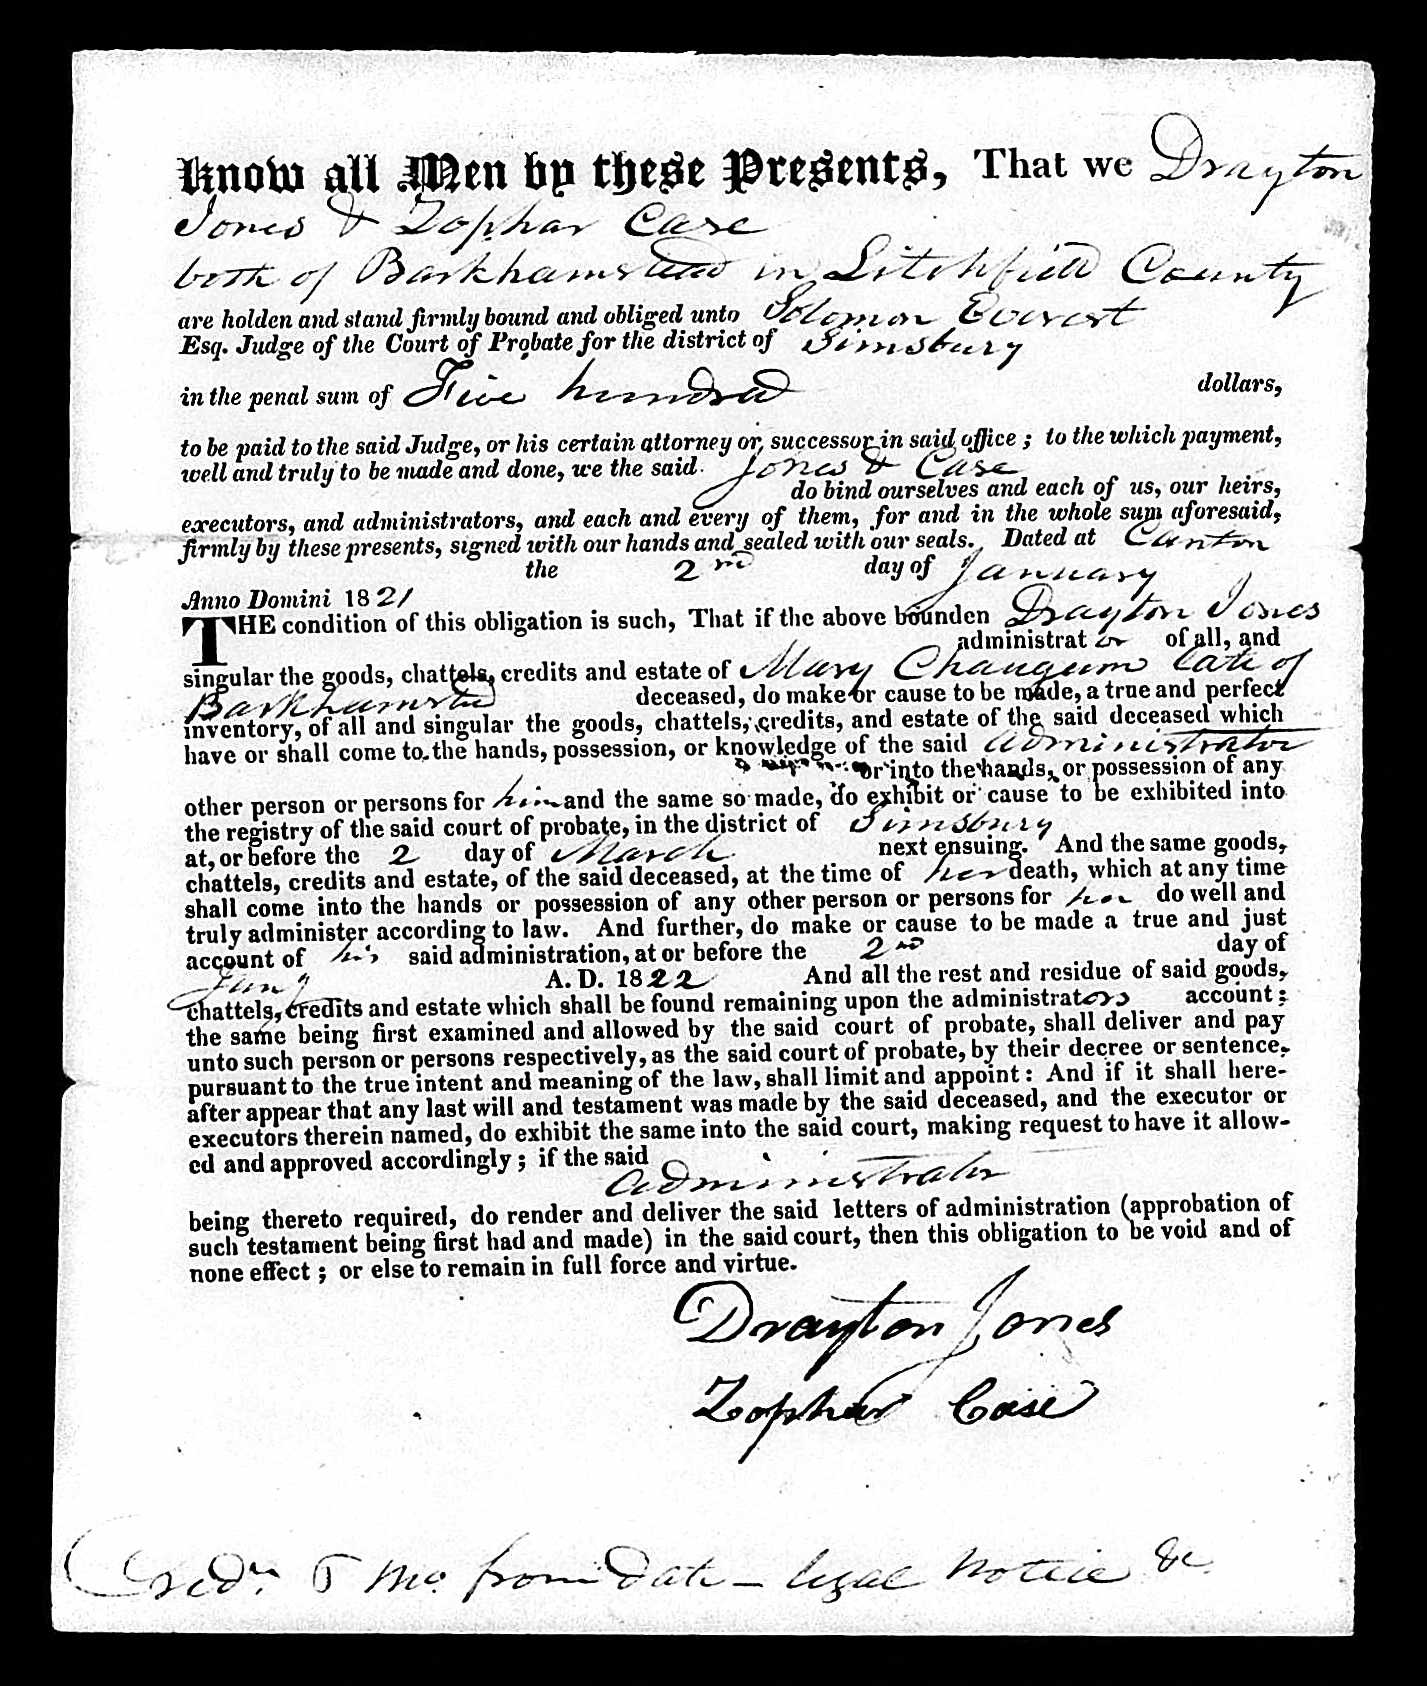 Know all Men by these Presents, That we Drayton
Jones & Zophar Case
both of Barkhamsted in Litchfield County
are holden and stand firmly bound and obliged unto Solomon Everest
Esq. Judge of the Court of Probate for the district of Simsbury
in the penal sum of Five hundred dollars,
to be paid to the said Judge, or his certain attorney or successor in said office ; to the which payment,
well and truly to be made and done, we the said Jones & Case
do bind ourselves and each of us, our heirs,
executors, and administrators, and each and every of them, for and in the whole sum aforesaid,
firmly by these presents, signed with our hands and sealed with our seals. Dated at Canton
the 2nd day of January
Anno Domini 1821
THE condition of this obligation is such, That if the above bounden Drayton Jones
administrator of all, and
singular the goods, chattels, credits and estate of Mary Chaugum late of
Barkhamsted deceased, do make or cause to be made, a true and perfect
inventory, of all and singular the goods, chattels, credits, and estate of the said deceased which
have or shall come to the hands, possession, or knowledge of the said administrator
or into the hands, or possession of any
other person or persons for him and the same so made, do exhibit or cause to be exhibited into
the registry of the said court of probate, in the district of Simsbury
at, or before the 2 day of March next ensuing. And the same goods,
chattels, credits and estate, of the said deceased, at the time of her death, which at any time
shall come into the hands or possession of any other person or persons for her do well and
truly administer according to law. And further, do make or cause to be made a true and just
account of his said administration, at or before the 2nd day of
Jany A. D. 1822 And all the rest and residue of said goods,
chattels, credits and estate which shall be found remaining upon the administrators account ;
the same being first examined and allowed by the said court of probate, shall deliver and pay
unto such person or persons respectively, as the said court of probate, by their decree or sentence,
pursuant to the true intent and meaning of the law, shall limit and appoint : And if it shall here-
after appear that any last will and testament was made by the said deceased, and the executor or
executors therein named, do exhibit the same into the said court, making request to have it allow-
ed and approved accordingly ; if the said
administrator
being thereto required, do render and deliver the said letters of administration (approbation of
such testament being first had and made) in the said court, then this obligation to be void and of
none effect ; or else to remain in full force and virtue.
Drayton Jones
Zophar Case
Credrs 6 mo. from date — legal notice &c